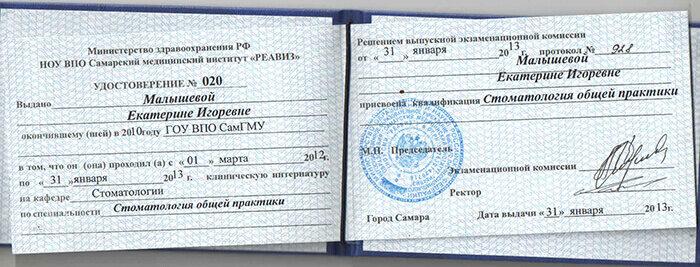 Министерство здравоохранения РФ
НОУ ВПО Самарский медицинский институт «РЕАВИЗ»
УДОСТОВЕРЕНИЕ № 020
Выдано Малышевой
Екатерине Игоревне
окончившему (шей) в 2010году ГОУ ВПО СамГМУ
в том, что он (она) проходил (а) с « 01 » марта 2012г.
по « 31 » января 2013 г. клиническую интернатуру
на кафедре Стоматологии
по специальности Стоматология общей практики
Решением выпускной экзаменационной комиссии
от « 31 » января 2013г. протокол № 928
Малышевой
Екатерине Игоревне
присвоена квалификация Стоматология общей практики
М.П. Председатель
Экзаменационной комиссии
Ректор
Город Самара Дата выдачи «31» января 2013г.